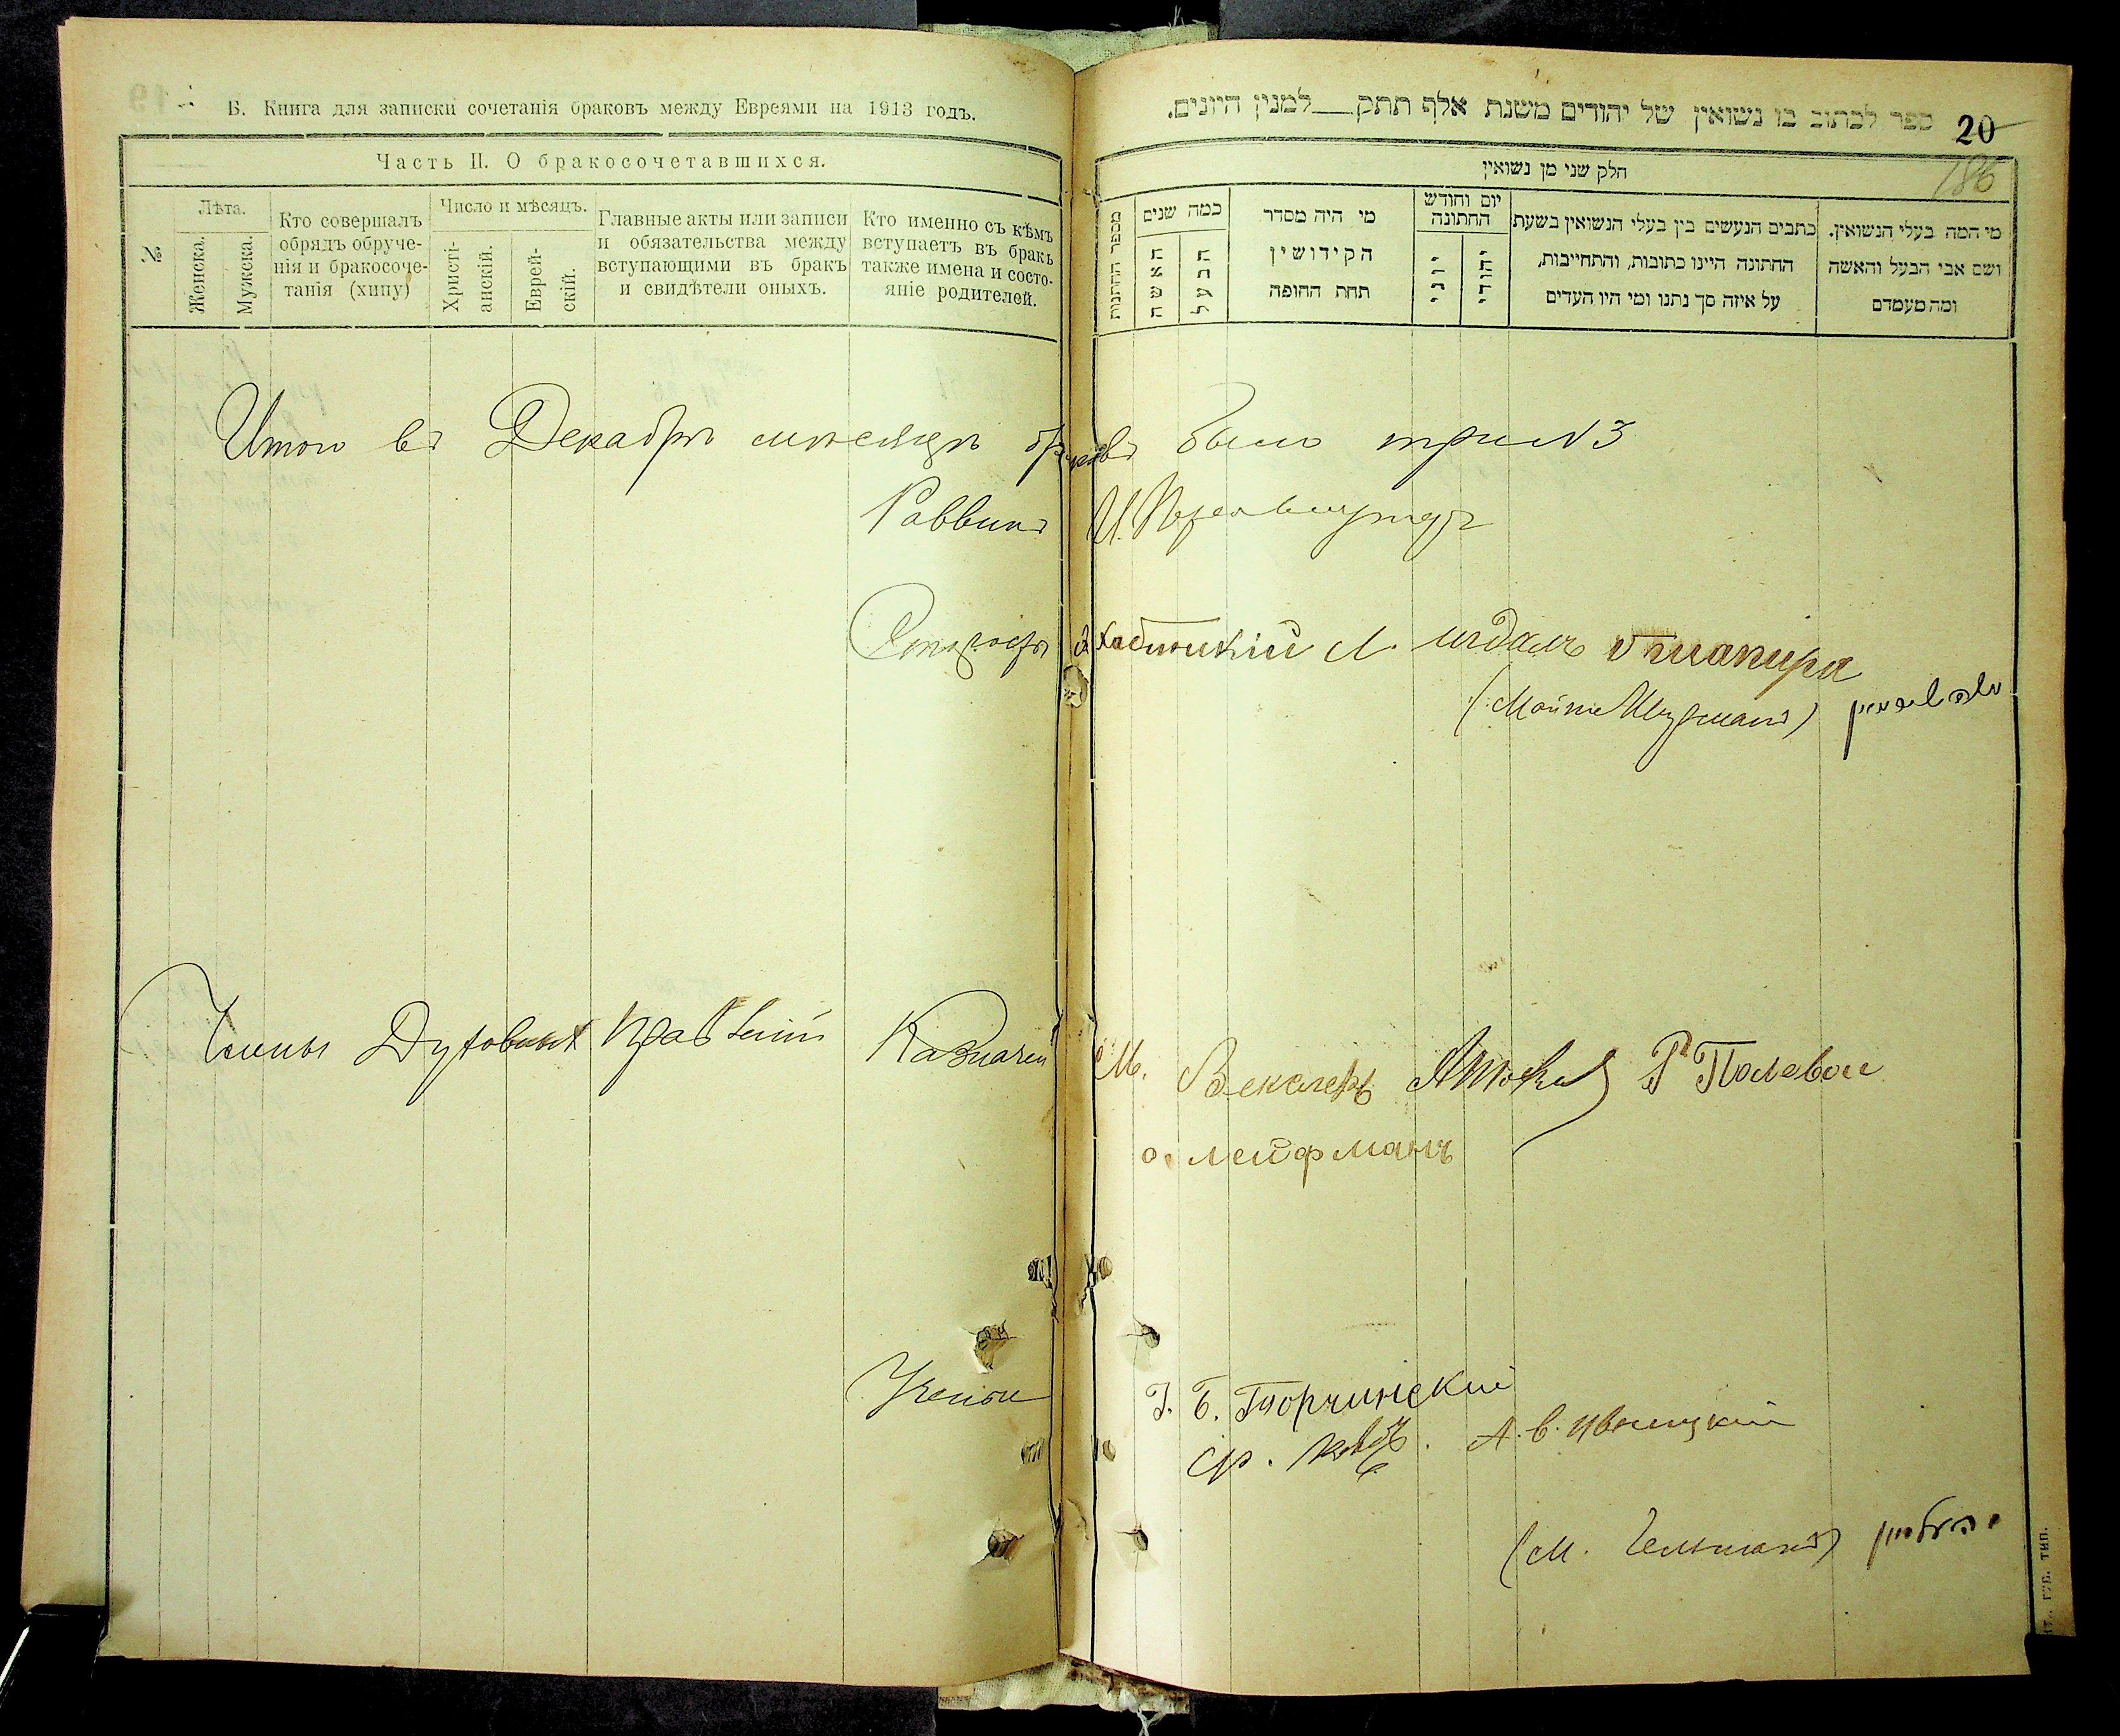 В. Книга для записки сочетанія браковъ между Евреями на 1913 годъ.
Часть II. О бракосочетавшихся.
№
Лѣта.
Женска.
Мужска.
Кто совершалъ
обрядъ обруче-
нія и бракосоче-
танія (хипу)
Число и мѣсяцъ.
Христі-
анскій.
Еврей-
скій.
Главные акты или записи
и обязательства между
вступающими въ бракъ
и свидѣтели оныхъ.
Кто именно съ кѣмъ
вступаетъ въ бракъ
также имена и состо-
яніе родителей.
ספר לכתוב בו נשואין של יהודים משנת אלף תתק למנין היונים.
20
186
חלק שני מן נשואין
מספר החתנות
כמה שנים
האשה
הבעל
מי היה מסדר
הקידושין
תחת החופה
יום וחודש
החתונה
יוני
יהודי
כתבים הנעשים בין בעלי הנשואין בשעת
החתונה היינו כתובות, והתחייבות,
על איזה סך נתנו ומי היו העדים
מי המה בעלי הנשואין.
ושם אבי הבעל והאשה
ומה מעמדם
Итого въ Декабрѣ мѣсяцѣ браковъ было три №3
Раввинъ И.
Старосты Л.
(Мойше Шурманъ)
Члены Духовныхъ правленій Казначеи М. Р Полевой
О. Лейфманъ
Ученые Г. Б. Торчинский
Ср. А. В.
(М. Гельманъ)
ГУБ. ТИП.